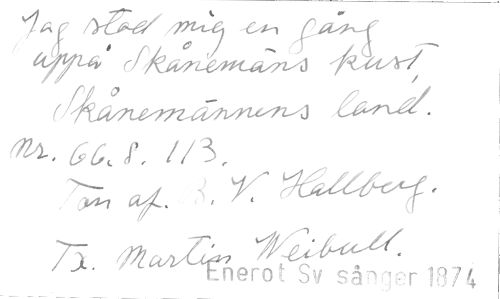 Jag stod mig en gång
uppå Skånemäns kust,
Skånemännens land.
Nr. 66. s. 113.
Ton af. B. V. Hallberg.
Tx. Martin Weibull.
Enerot Sv sånger 1874